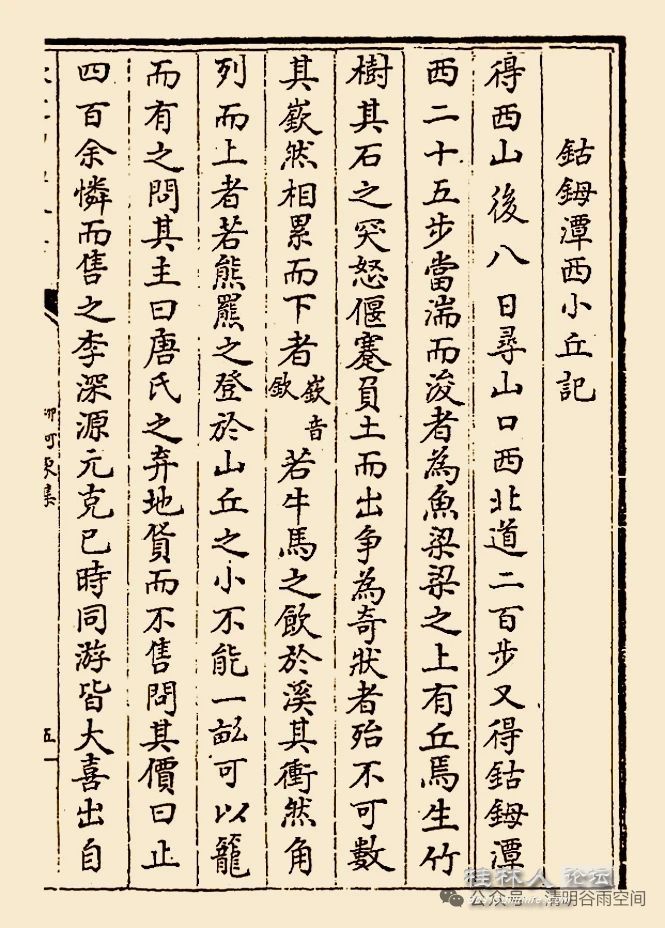 鈷鉧潭西小丘記
得西山後八日尋山口西北道二百步又得鈷鉧潭
西二十五步當湍而浚者為魚梁梁之上有丘焉生竹
樹其石之突怒偃蹇負土而出爭為奇狀者殆不可數
其嶔然相累而下者嶔音欽若牛馬之飲於溪其衝然角
列而上者若熊羆之登於山丘之小不能一畝可以籠
而有之問其主曰唐氏之弃地貨而不售問其價曰止
四百余憐而售之李深源元克己時同游皆大喜出自
柳河東集
五
桂林人论坛
公众号 清明谷雨空间